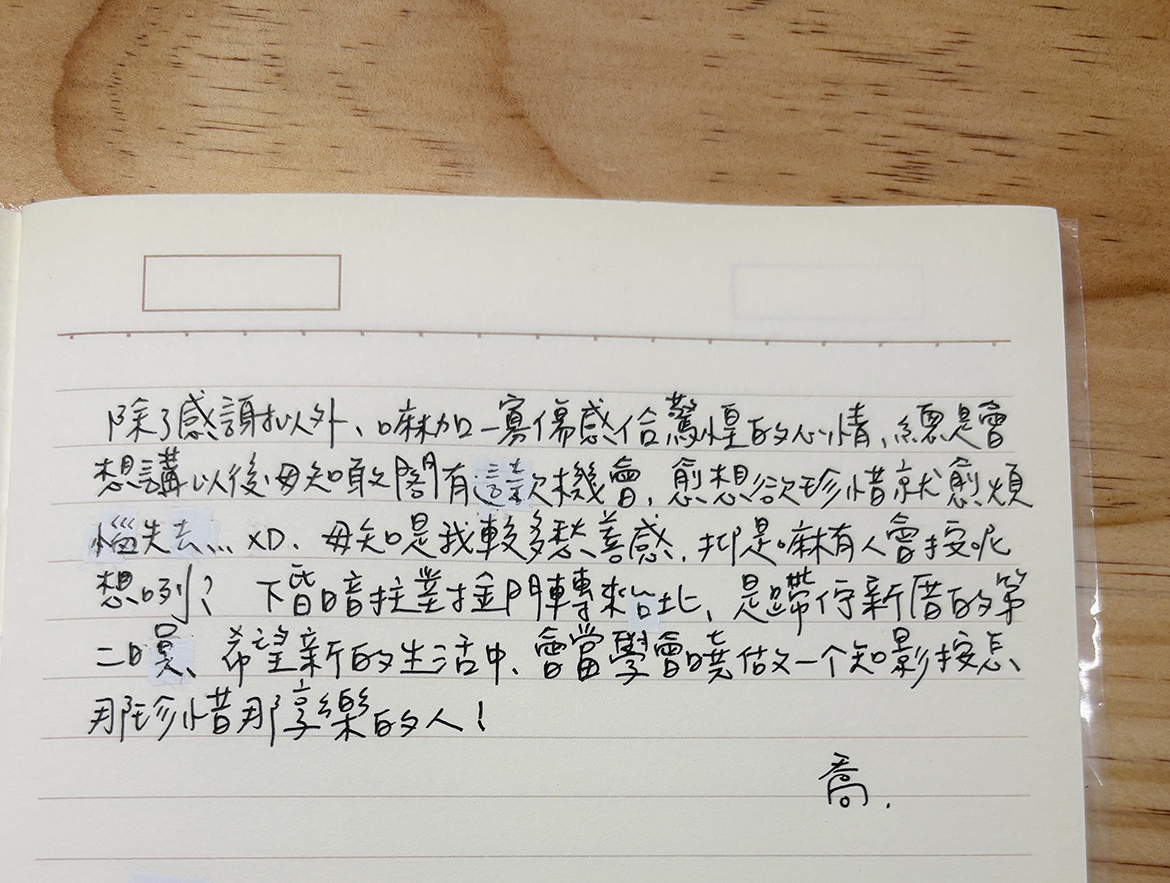 除了感謝以外、嘛加一寡傷感佮驚惶的心情,總是會
想講以後毋知敢閣有這款機會,愈想欲珍惜就愈煩
惱失去... XD. 毋知是我較多愁善感,抑是嘛有人會按呢
想咧? 下昏暗拄對金門轉來台北、是蹛佇新厝的第
二日暝、希望新的生活中、會當學會曉做一个知影按怎、
那珍惜那享樂的人!
喬.